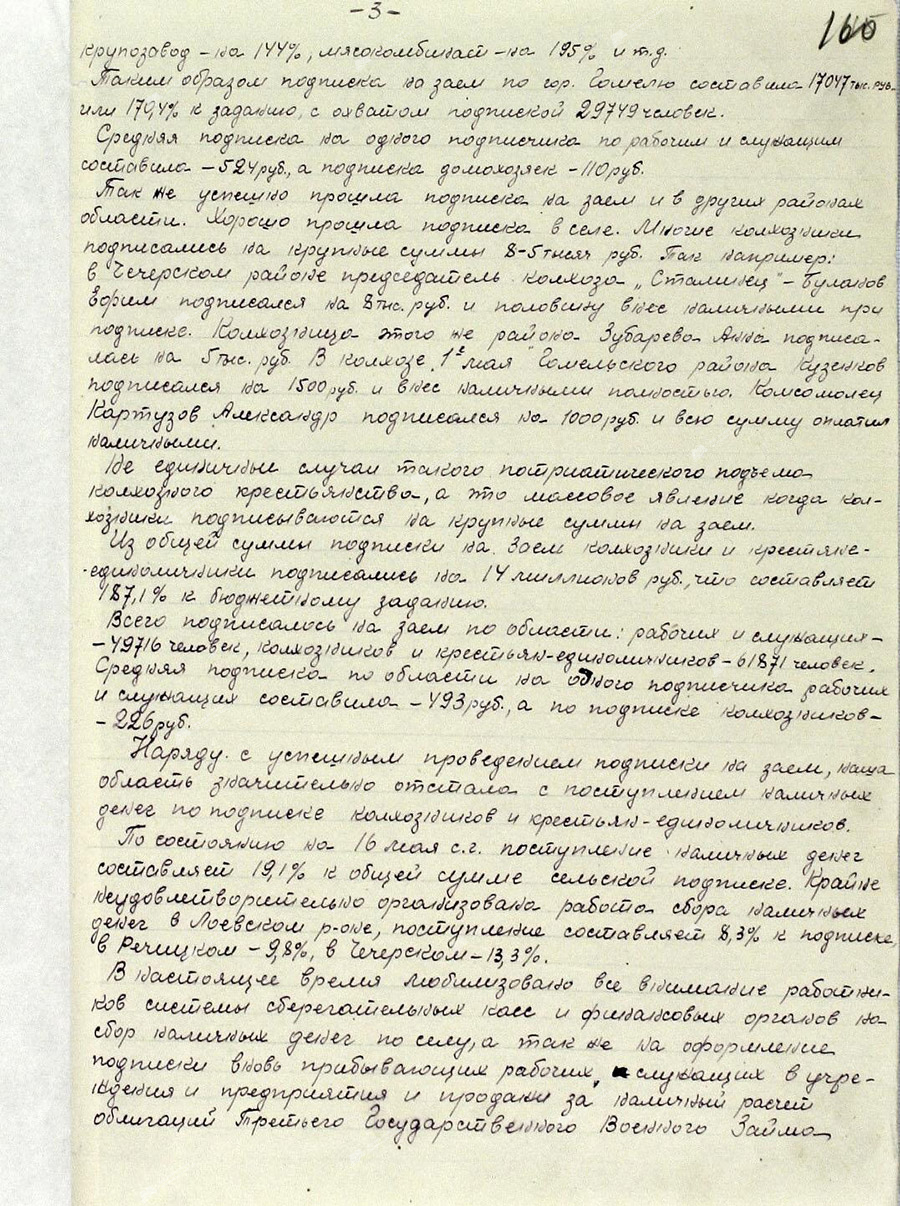 -3-
160
крупозавод - на 144%, мясокомбинат - на 195% и т.д.
Таким образом подписка на заем по гор. Гомелю составила 17047 тыс. руб.
или 170,4% к заданию, с охватом подпиской 29749 человек.
Средняя подписка на одного подписчика по рабочим и служащим
составила - 524 руб., а подписка домохозяек - 110 руб.
Так же успешно прошла подписка на заем и в других районах
области. Хорошо прошла подписка в селе. Многие колхозники
подписались на крупные суммы 8-5 тысяч руб. Так например:
в Чечерском районе председатель колхоза „Сталинец" - Буланов
Ефрем подписался на 8 тыс. руб. и половину внес наличными при
подписке. Колхозница этого же района Зубарева Анна подписа-
лась на 5 тыс. руб. В колхозе „1е мая" Гомельского района Кузенков
подписался на 1500 руб. и внес наличными полностью. Комсомолец
Картузов Александр подписался на 1000 руб. и всю сумму оплатил
наличными.
Не единичные случаи такого патриатического подъема
колхозного крестьянства, а это массовое явление когда кол-
хозники подписываются на крупные суммы на заем.
Из общей суммы подписки на Заем колхозники и крестяне-
-единоличники подписались на 14 миллионов руб., что составляет
187,1% к бюджетному заданию.
Всего подписалось на заем по области: рабочих и служащих -
- 49716 человек, колхозников и крестьян-единоличников - 61871 человек.
Средняя подписка по области на одного подписчика рабочих
и служащих составила - 493 руб., а по подписке колхозников -
- 226 руб.
Наряду с успешным проведением подписки на заем, наша
область значительно отстала с поступлением наличных
денег по подписке колхозников и крестьян-единоличников.
По состоянию на 16 мая с.г. поступление наличных денег
составляет 19,1% к общей сумме сельской подписке. Крайне
неудовлетворительно организована работа сбора наличных
денег в Лоевском р-оне, поступление составляет 8,3% к подписке,
в Речицком - 9,8%, в Чечерском - 13,3%.
В настоящее время мобилизовано все внимание работни-
ков системы сберегательных касс и финансовых органов на
сбор наличных денег по селу, а так же на оформление
подписки вновь прибывающих рабочих, служащих в учре-
ждения и предприятия и продажи за наличный расчет
облигаций Третьего Государственного Военного Займа